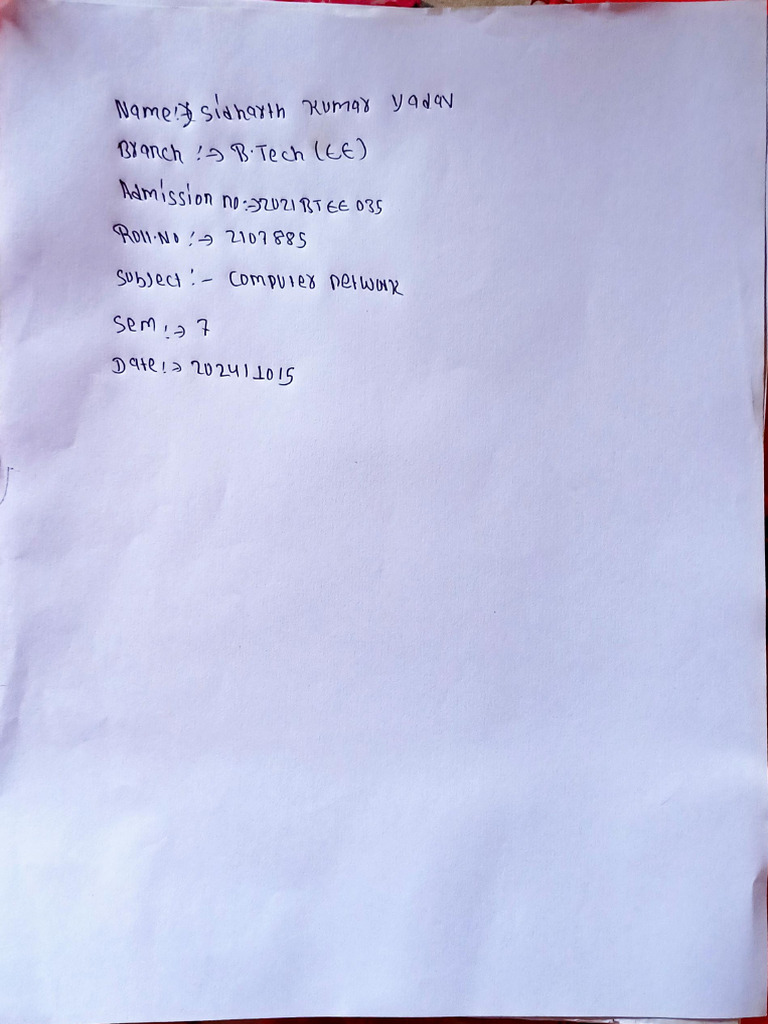 Name:→ Sidharth Kumar Yadav
Branch :→ B.Tech (EE)
Admission no:→2021BTEE035
Roll.No :→ 2107885
Subject :- Computer network
Sem :→ 7
Date :→ 2024/10/5